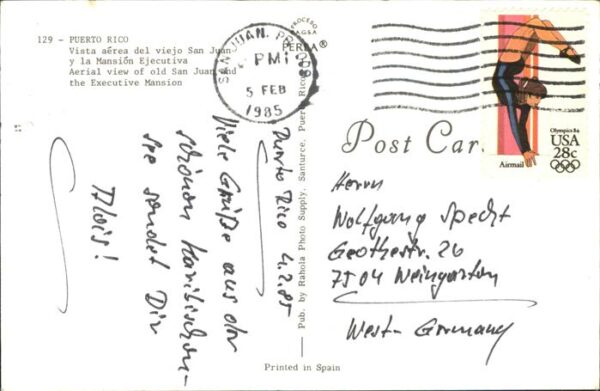 129 - PUERTO RICO
Vista aérea del viejo San Juan
y la Mansión Ejecutiva
Aerial view of old San Juan and
the Executive Mansion
PROCERO
PERLA®
SAN JUAN, PR
PM
5 FEB
1985
Olympics 84
USA
28c
Airmail
Post Car
Puerto Rico 4.2.85
Viele Grüße aus der
schönen karibischen-
see sendet Dir
Alois!
Herrn
Wolfgang Specht
Goethestr. 26
7504 Weingarten
West-Germany
Pub. by Rahola Photo Supply, Santurce, Puerto Rico
Printed in Spain